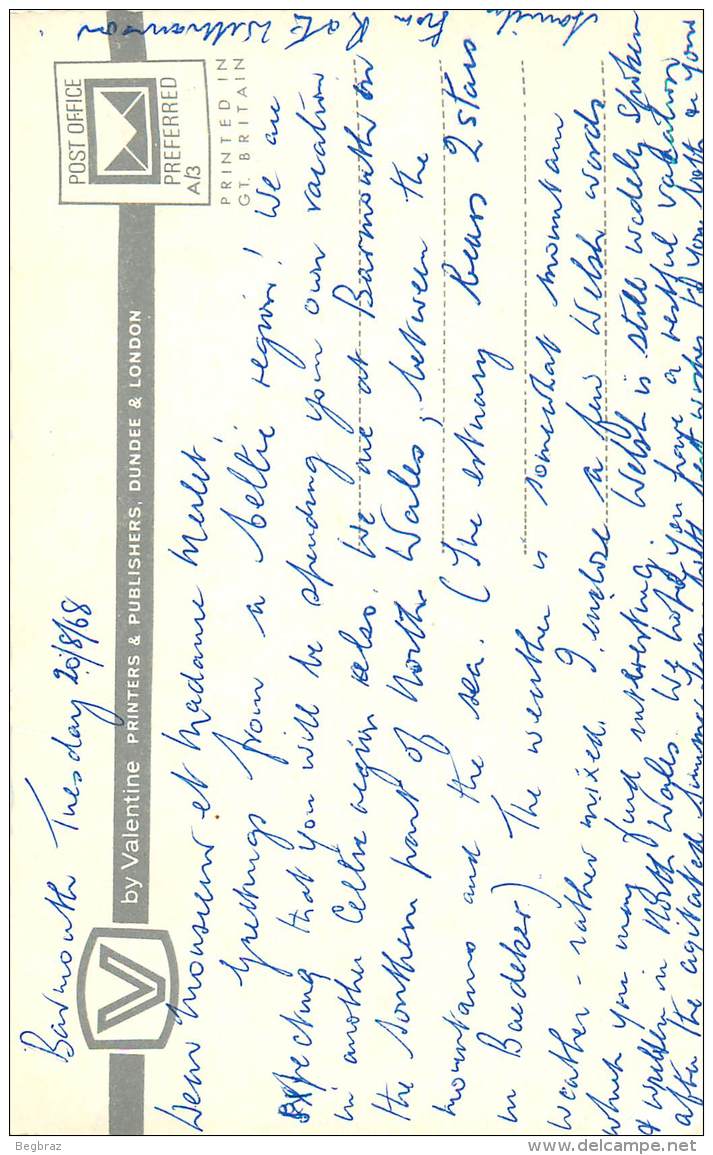 Barmouth Tuesday 20/8/68
by Valentine PRINTERS & PUBLISHERS, DUNDEE & LONDON
V
POST OFFICE
PREFERRED
A/3
PRINTED IN
GT. BRITAIN
Dear Monsieur et Madame Merlet,
Greetings from a Celtic region! We are
expecting that you will be spending your own vacation
in another Celtic region also. We are at Barmouth in
the southern part of North Wales, between the
mountains and the sea. (The estuary bears 2 stars
in Baedeker) The weather is somewhat mountain
weather - rather mixed. I enclose a few Welsh words
which you may find interesting. Welsh is still widely spoken
& written in North Wales. We hope you have a restful vacation
after the agitated summer term, with best wishes to you both & your
family
from
Williamson
Begbraz
delcampe.net